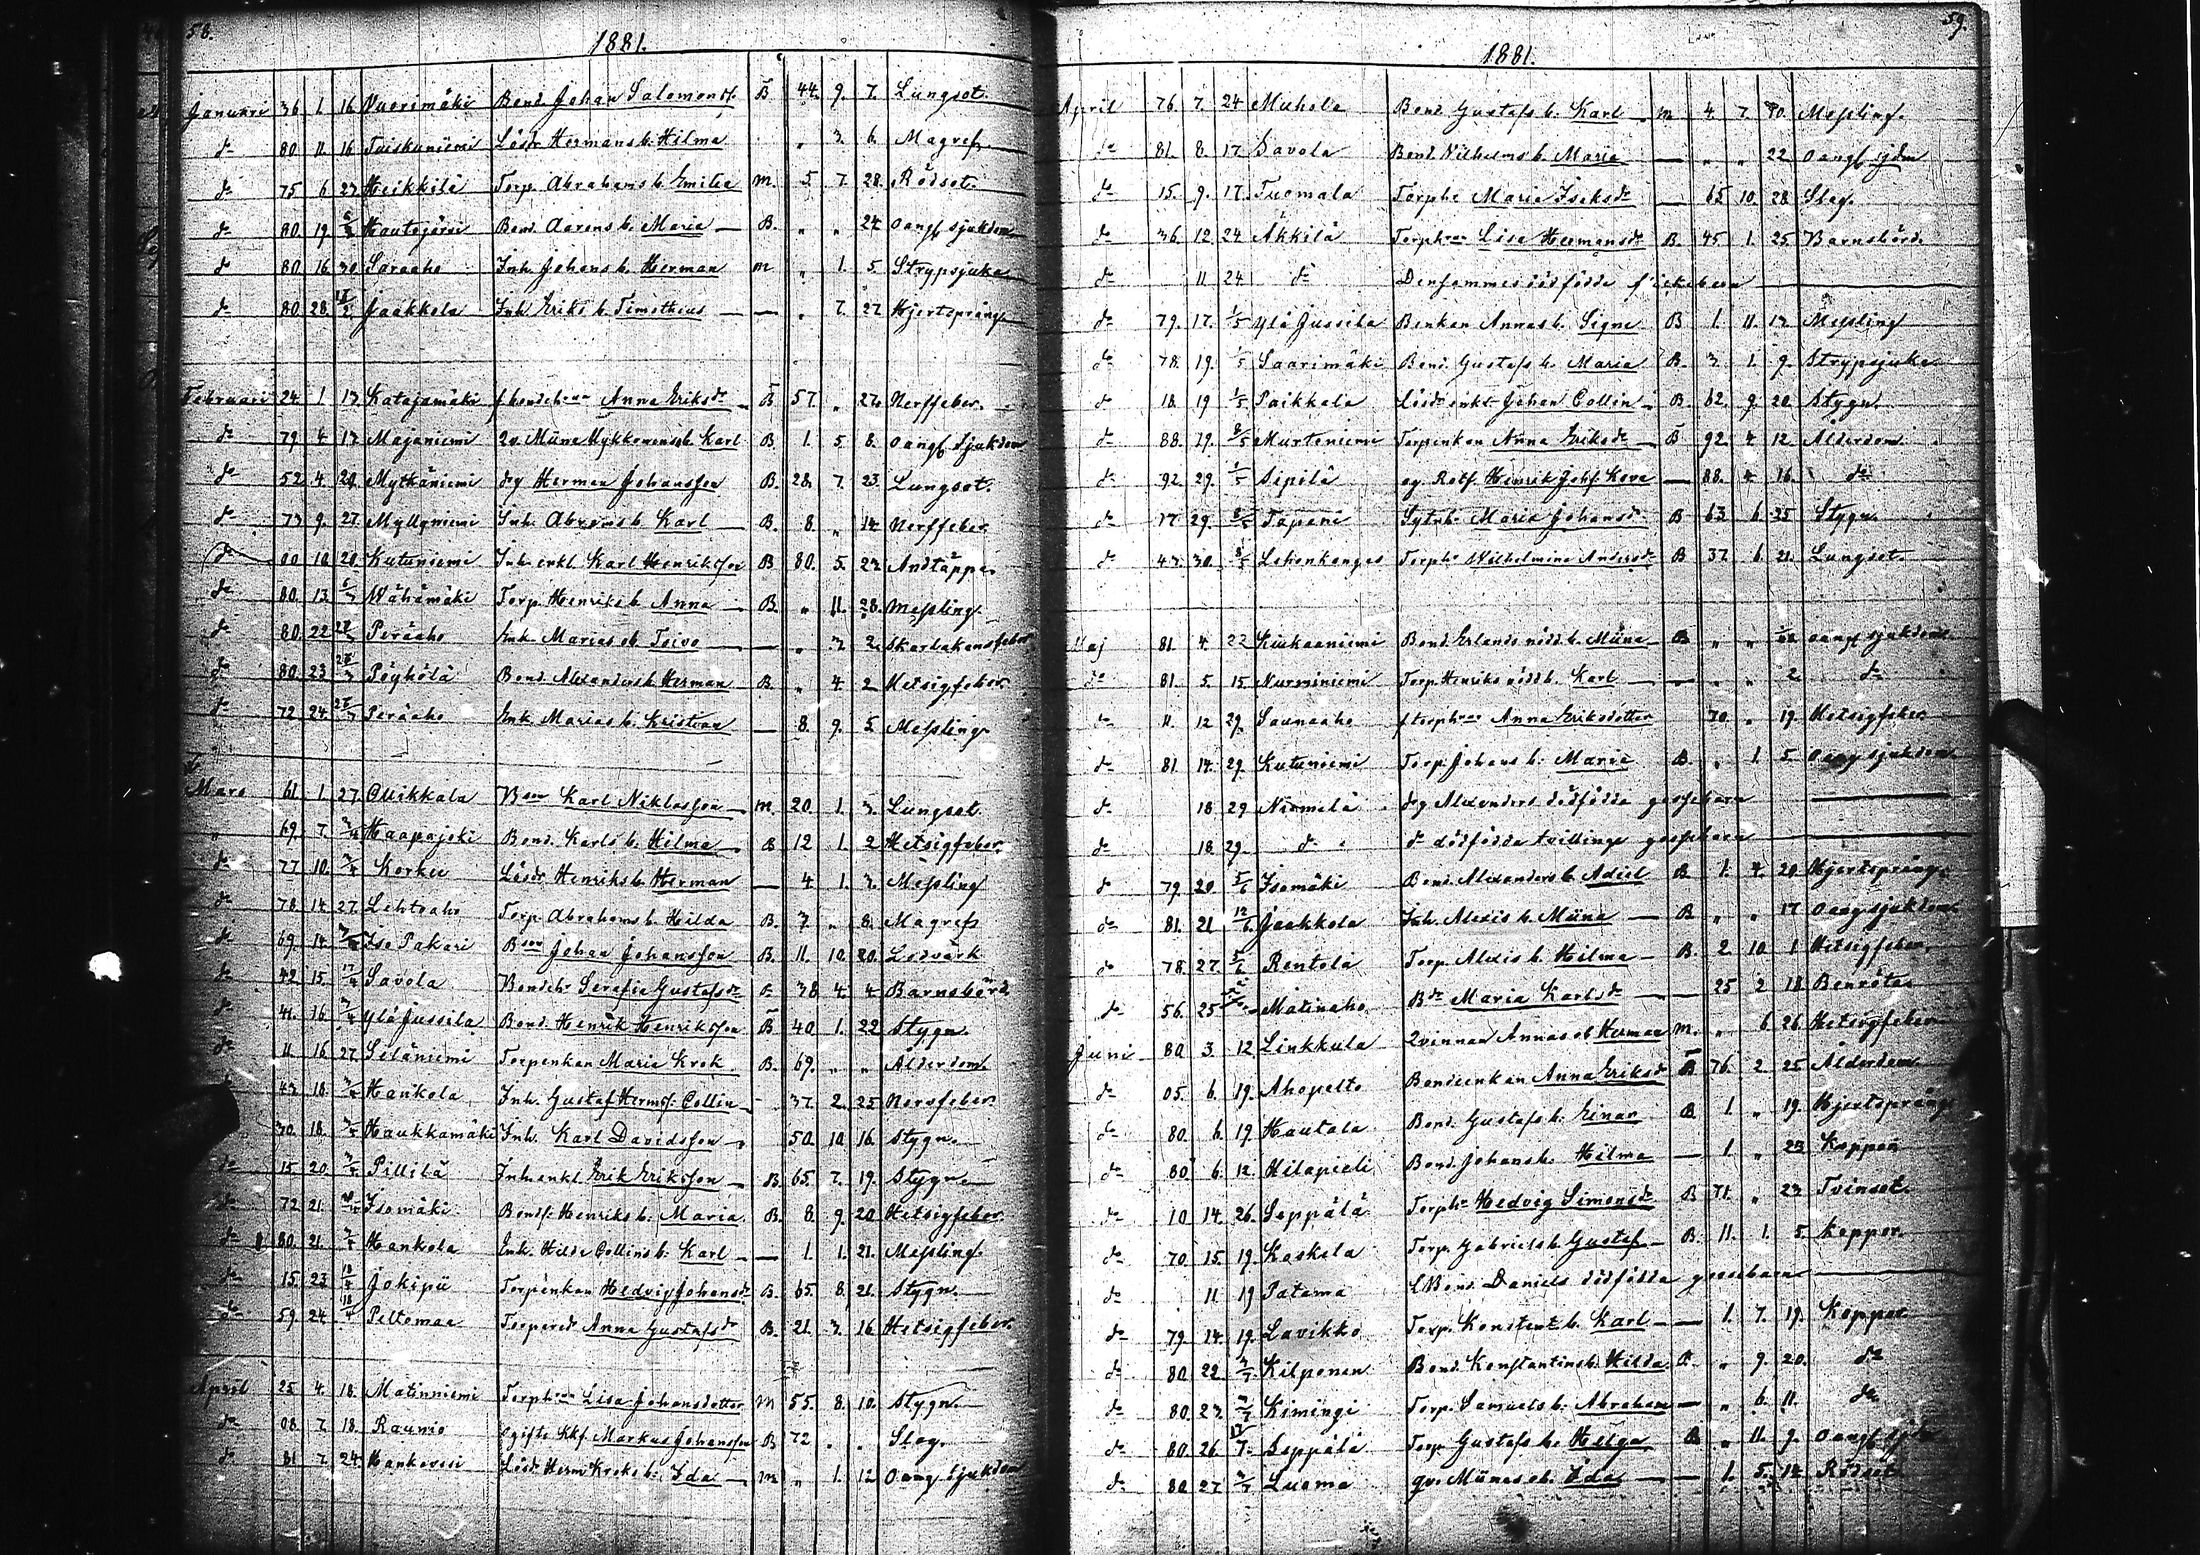 58.
1881.
Januari 36. 1. 16 Vuorimäki Bond. Johan Salomonsf. B 44. 9. 7. Lungsot.
do 80 11. 16 Toiskaniemi Lösdr Hermans b. Hilma „ 3. 6. Magref
do 75 6 27 Heikkilä Torp. Abrahams b. Emilia m. 5. 7. 28. Rödsot.
do 80. 19. 6/2 Hautajärvi Bond. Aarons b. Maria — B. „ „ 24 Oangf sjukdom
do 80 16 30 Saraaho Inh. Johans b. Herman m „ 1. 5 Strypsjuka
do 80. 28. Jaakkola Inh. Eriks b. Timotheus — — „ 7. 27 Hjertsprång
Februari 24. 1 13 Katajamäki f. bondehrun Anna Eriksdr B 57. „ 27. Nerffeber.
do 79 4 13 Majaniemi Qv. Miina Nykkanens b. Karl B. 1. 5 8. Oangf Sjukdom
do 52. 4. 20. Mytkäniemi drg Herman Johansson B. 28. 7. 23. Lungsot.
do 73 9. 27. Myllyniemi Inh. Abrams b. Karl — B. 8. „ 14 Nerffeber.
do 00 10 20. Kutuniemi Inh. enkl. Karl Henriksson B 80. 5. 23 Andtäppa
do 80. 13 Wähämäki Torp. Henriks b. Anna — B. „ 11. 28. Messling
do 80. 22 Peräaho Inh. Marias ob. Toivo — — „ 3 2. Skarlakansfeber
do 80. 23 Pöyhölä Bond. Alexanders b. Herman B „ 4 2 Hetsigfeber
do 72 24. Peräaho Inh. Marias b. Kristian — 8. 9. 5 Messling
Mars 61. 1 27. Ollikkala Bson Karl Niklasson — m. 20. 1. 3. Lungsot.
„ 69. 7. Haapajoki Bond. Karls b. Hilma — B 12 1. 2 Hetsigfeber.
do 77 10. Korku Lösdr Henriks b. Herman — 4 1. 3. Messling
do 78. 14 27. Lehtoaho Torp. Abrahams b. Hilda B. 7. „ 8. Magref
do 69. 14. Iso Pakari Bson Johan Johansson B. 11. 10. 20. Ledvärk
do 42 15. Savola Bondeh. Serafia Gustafsdr B 38 4. 4. Barnsbörd
do 41. 16. Ylä Jussila Bond. Henrik Henriksson B 40. 1. 22 Stygn.
do 11 16 27. Seläniemi Torpenkan Maria Krok. B. 69. „ „ Ålderdom.
43. 18. Hankola Inh. Gustaf Hermsf. Collin 37. 2. 25 Nervfeber.
30. 18. Haukkamäki Inh. Karl Davidsson — 50. 10 16. Stygn.
do 15. 20. Pillilä Inh. enkl. Erik Eriksson — B. 65. 7. 19. Stygn.
do 72 21. Isomäki Bondf. Henriks b. Maria B. 8. 9. 20 Hetsigfeber
do 80. 21. Hankola Inh. Hilda Collins b. Karl — — 1. 1. 21. Messling
do 15. 23 Jokipii Torpenkan Hedvig Johansdr B. 65. 8. 21. Stygn.
do 59. 24. Peltomaa Torpared. Anna Gustafsdr B. 21. 3. 16 Hetsigfeber.
April 25. 4. 18. Matinniemi Torphrun Lisa Johansdotter m 55. 8. 10. Stygn.
do 08. 7. 18. Raunio Ogifte Kkf. Markus Johansson B 72 . . Slag.
do 81 7. 24. Hankavesi Lösdr Herm. Kroks b. Ida — m „ 1. 12 Oang. Sjukdom
59.
1881.
April 76. 7. 24 Muhola Bond. Gustafs b. Karl m 4. 7. 20. Messling.
do 81. 8. 17. Savola Bond. Wilhelms b. Maria — „ „ 22 Oangf sjdm
do 15. 9. 17. Tuomala Torphr Maria Isaksdr — 65 10. 28 Slag.
do 36. 12. 24 Äkkilä Torphrun Lisa Hermansdr B. 45 1. 25. Barnsbörd.
do 11 24. do Densammes dödfödda flickebarn
do 79. 17. 1/5 Ylä Jussila Benkan Annas b. Signe B 1. 11. 13. Messling
do 78. 19. 1/5 Saarimäki Bond. Gustafs b. Maria B. 3. 1. 9. Strypsjuka
do 18. 19 1/5 Paikkala Lösdr enkl. Johan Collin B. 62. 9. 20 Stygn.
do 88. 19. 8/5 Murtoniemi Torpenkan Anna Eriksdr — B 92. 4 12. Ålderdom.
do 92. 29. 1/5 Sipilä og. Rotf. Henrik Johsf. Kova — 88. 4 16. do
do 17 29. 8/5 Tapani Sytnh. Maria Johansdr B 63 6 25 Stygn.
do 43. 30. 8/5 Lehonkangas Torphr Wilhelmina Andersdr B 37. 6. 21. Lungsot.
Maj 81. 4. 22 Kiukaaniemi Bond. Erlands nödd. b. Miina — B „ „ oangf sjukdom
do 81. 5. 15. Nurminiemi Torp. Henriks nödd b. Karl — — „ „ 2. do
do 11. 12 29. Saunaaho f. torphrun Anna Eriksdotter 70. „ 19. Hetsigfeber
do 81 14. 29. Kutuniemi Torp. Johans b. Maria B. „ 1. 5. Oang sjukdom
do 18 29 Niemelä drg Alexanders dödfödda gossebarn
do 18. 29. do do dödfödda tvillinge gossebarn
do 79. 20. 5/6 Isomäki Bond. Alexanders b. Adiel B 1. 4. 20. Hjertsprång.
do 81. 21. 12/6 Jaakkola Inh. Alexis b. Miina — B „ „ 17 Oang sjukdom
do 78. 27. 5/6 Rentola Torp. Alexis b. Hilma — B. 2. 10. 1. Hetsigfeber.
do 56. 25 Matinaho Bdr Maria Karlsdr — 25 2 18. Benröta
Juni 80. 3. 12 Linkkula Qvinnan Annas ob Herman m. „ 6 26. Hetsigfeber
do 05. 6. 19. Ahopelto Bondeenkan Anna Eriksdr B 76. 2 25. Ålderdom
do 80. 6. 19. Hautala Bond. Gustafs b. Einar B 1. „ 19. Hjertsprång
do 80 6. 12. Hilapieli Bond. Johans b. Hilma — 1. „ 23 Koppor
do 10 14. 26. Seppälä Torphr Hedvig Simonsdr B 71. „ 23 Tvinsot.
do 70. 15. 19. Koskela Torp. Gabriels b. Gustaf — B. 11. 1. 5. koppor.
do 11 19 Patama Bond. Daniels dödfödda gossebarn
do 79. 14. 19. Lavikko Torp. Konstant. b. Karl — — 1. 7. 19. Koppor
do 80. 22. Kilponen Bond. Konstantins b. Hilda B. „ 9. 20. do
do 80. 23. Kimingi Torp. Samuels b. Abraham — „ 6. 11. do
do 80. 26. Seppälä Torp. Gustafs b. Helga B „ 11. 9. Oangf sjdm
do 80. 27. Luoma qv. Miinas ob. Ida — — 1. 5. 14. Rödsot